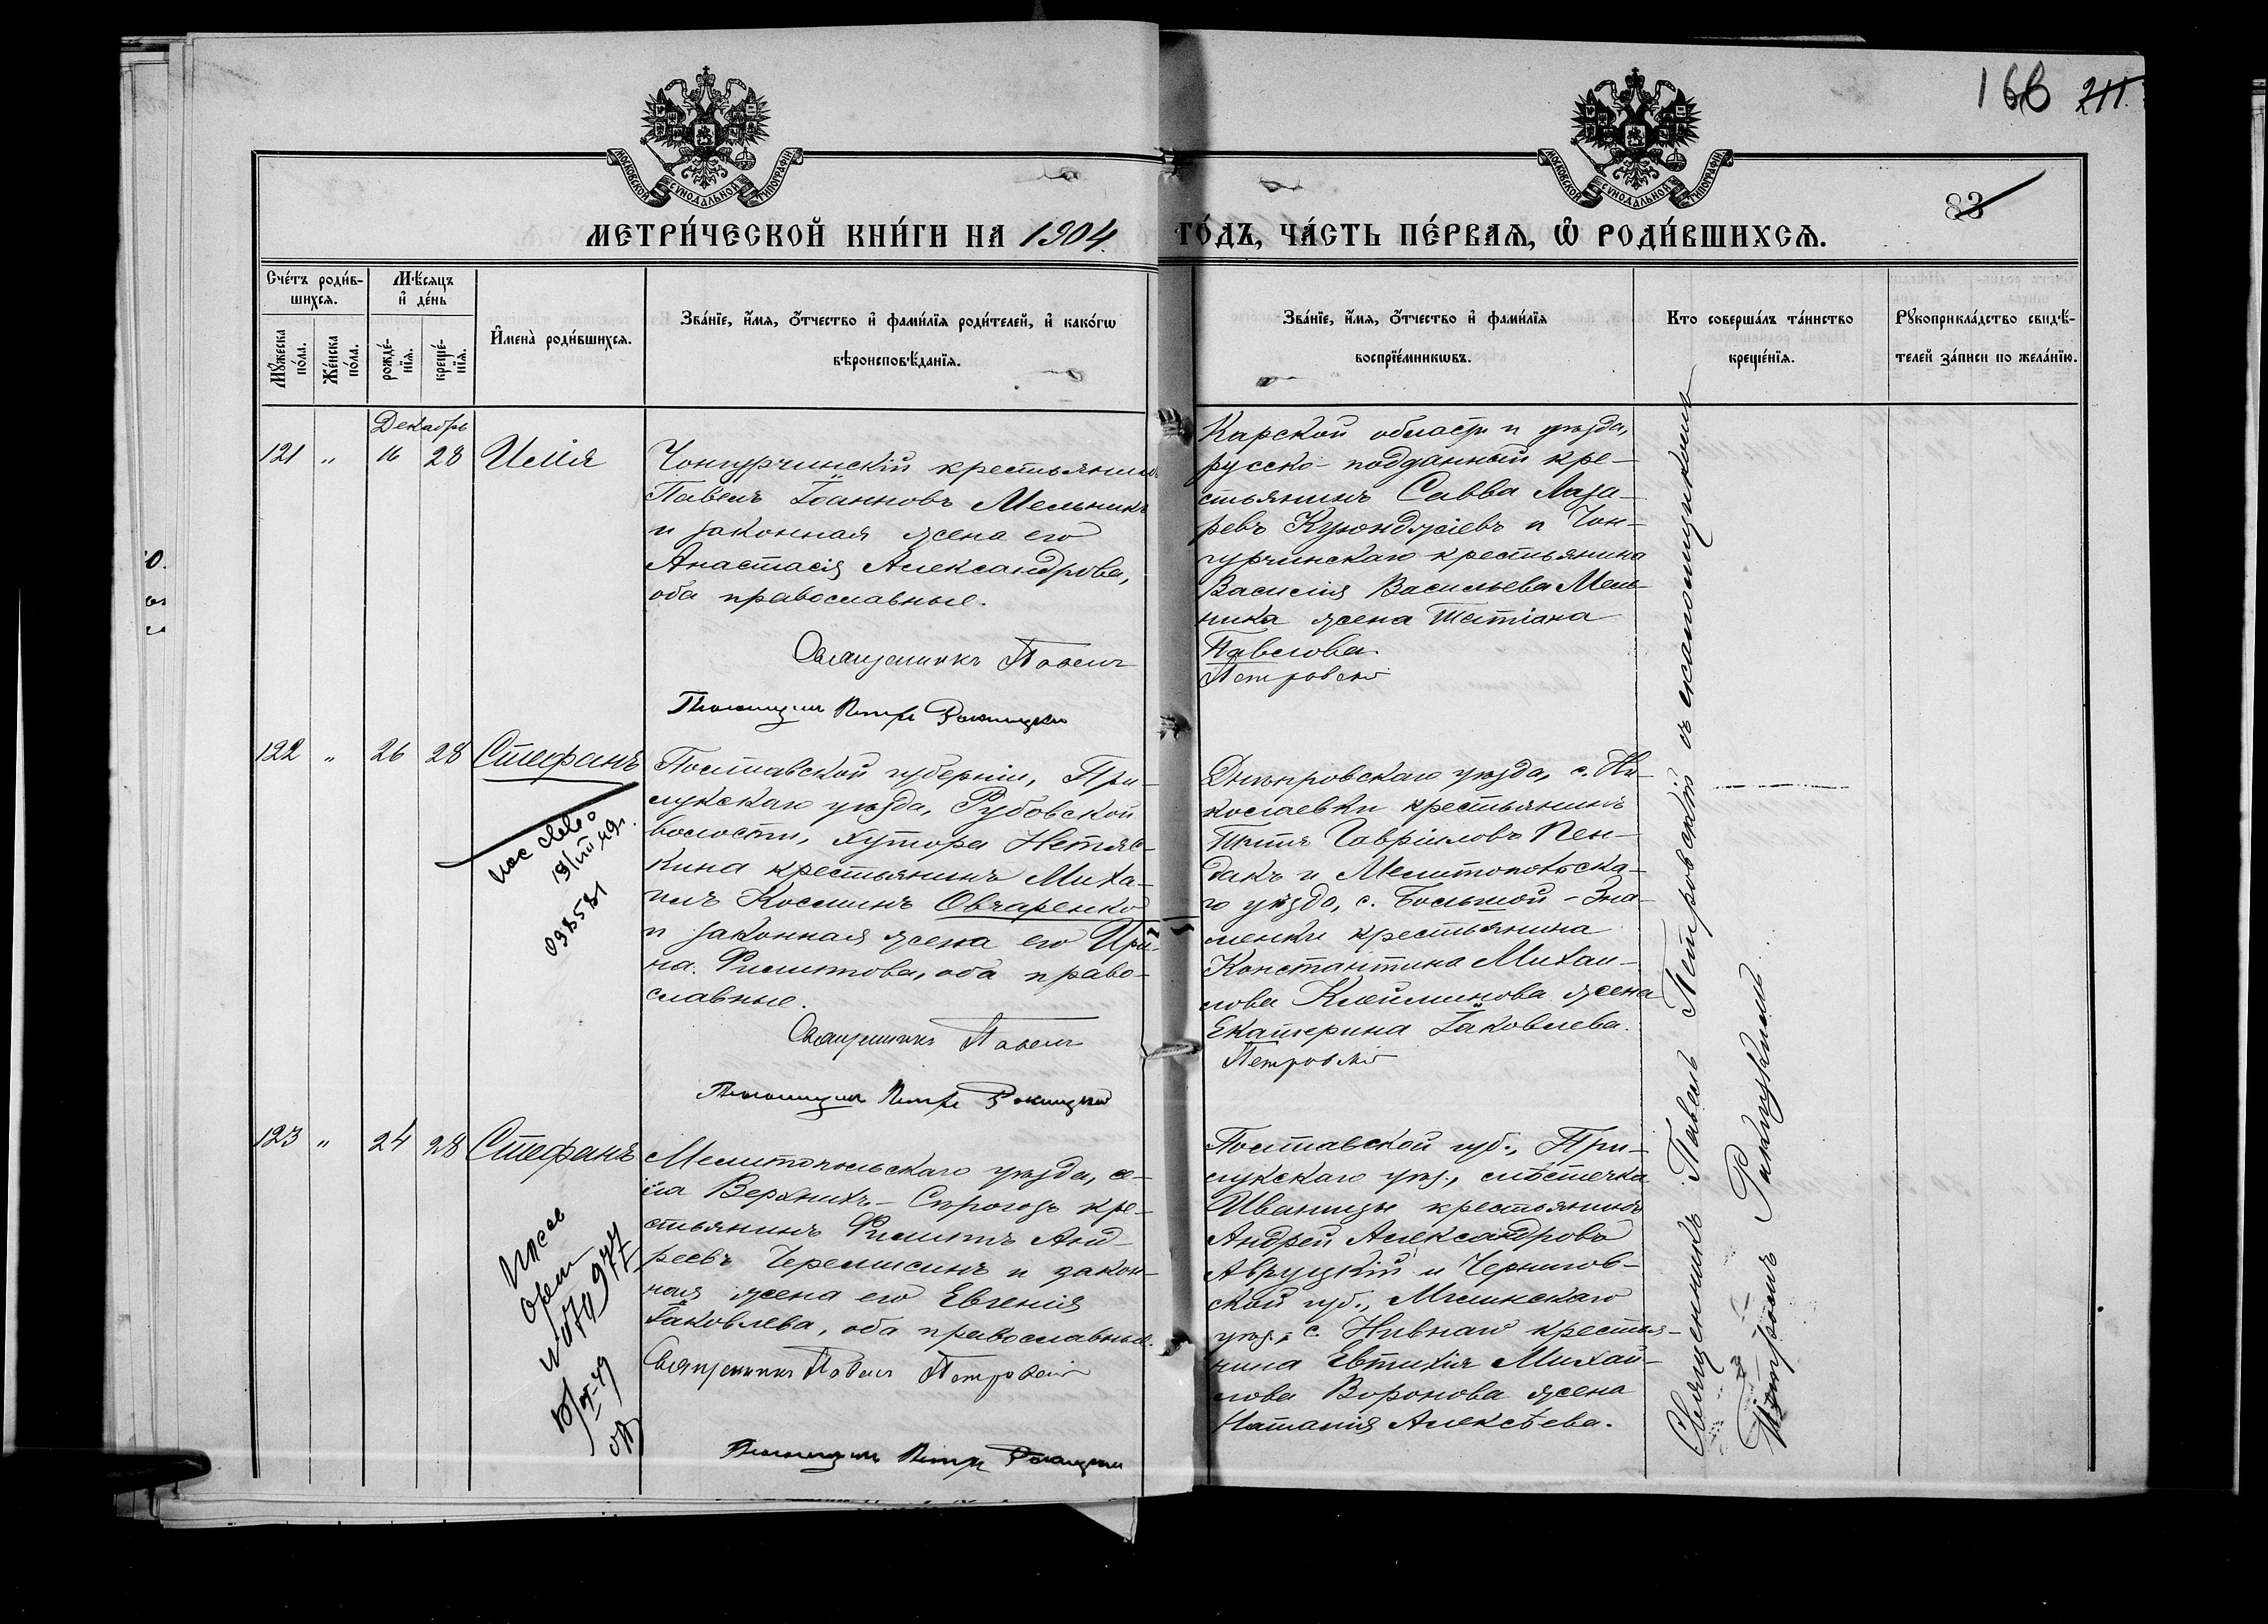 166 211.
83
МОСКОВСКОЙ СѴНОДАЛЬНОЙ ТИПОГРАФІИ
МОСКОВСКОЙ СѴНОДАЛЬНОЙ ТИПОГРАФІИ
МЕТРИ́ЧЕСКОЙ КНИ́ГИ НА 1904. ГО́ДЪ, ЧА́СТЬ ПЕ́РВАѦ, Ѽ РОДИ́ВШИХСѦ.
Сче́тъ роди́в-
шихсѧ.
Мꙋ́жеска
по́ла.
Же́нска
по́ла.
Мѣ́сѧцъ
и҆ де́нь
рожде́-
нїѧ.
креще́-
нїѧ.
И҆мена̀ роди́вшихсѧ.
Зва́нїе, и҆́мѧ, ѻ҆́тчество и҆ фами́лїѧ роди́телей, и҆ како́гѡ
вѣроисповѣ́данїѧ.
Зва́нїе, и҆́мѧ, ѻ҆́тчество и҆ фами́лїѧ
воспрїе́мникѡвъ.
Кто соверша́лъ та́инство
креще́нїѧ.
Рꙋкоприкла́дство свидѣ́-
телей за́писи по жела́нїю.
Декабрь
121 " 16 28 Илія
Чонгурчинскій крестьянинъ
Павелъ Іоанновъ Мельникъ
и законная жена его
Анастасія Александрова,
оба православные.
Священникъ Павелъ
Петровскій
Псаломщикъ Петръ Ракицкій
Карской области и уѣзда,
русско-подданный кре-
стьянинъ Савва Лаза-
ревъ Куюнджіевъ и Чон-
гурчинскаго крестьянина
Василія Васильева Мель-
ника жена Татіана
Павлова.
122 " 26 28 Стефанъ
Полтавской губерніи, При-
лукскаго уѣзда, Рудовской
волости, хутора Нетяж-
кина крестьянинъ Миха-
илъ Косминъ Овчаренко
и законная жена его Ири-
на Филиппова, оба право-
славные.
Священникъ Павелъ
Петровскій
Псаломщикъ Петръ Ракицкій
19/VIII 49г.
098581
Днѣпровскаго уѣзда, с. Ни-
колаевки крестьянинъ
Титъ Гавріиловъ Пен-
дакъ и Мелитопольска-
го уѣзда, с. Большой-Зна-
менки крестьянина
Константина Михаи-
лова Клейминова жена
Екатерина Іаковлева.
123 " 24 28 Стефанъ
Мелитопольскаго уѣзда, се-
ла Верхнихъ-Сѣрогозъ кре-
стьянинъ Филиппъ Анд-
реевъ Черемисинъ и закон-
ная жена его Евгенія
Іаковлева, оба православные.
Священникъ Павелъ Петровскій
Псаломщикъ Петръ Ракицкій
Полтавской губ., При-
лукскаго уѣз., мѣстечка
Иваницы крестьянинъ
Андрей Александровъ
Авруцкій и Чернигов-
ской губ., Мглинскаго
уѣз., с. Нивнаго крестья-
нина Евтихія Михай-
лова Воронова жена
Наталія Алексѣева.
Священникъ Павелъ Петровскій съ псаломщикомъ
Петромъ Ракицкимъ.